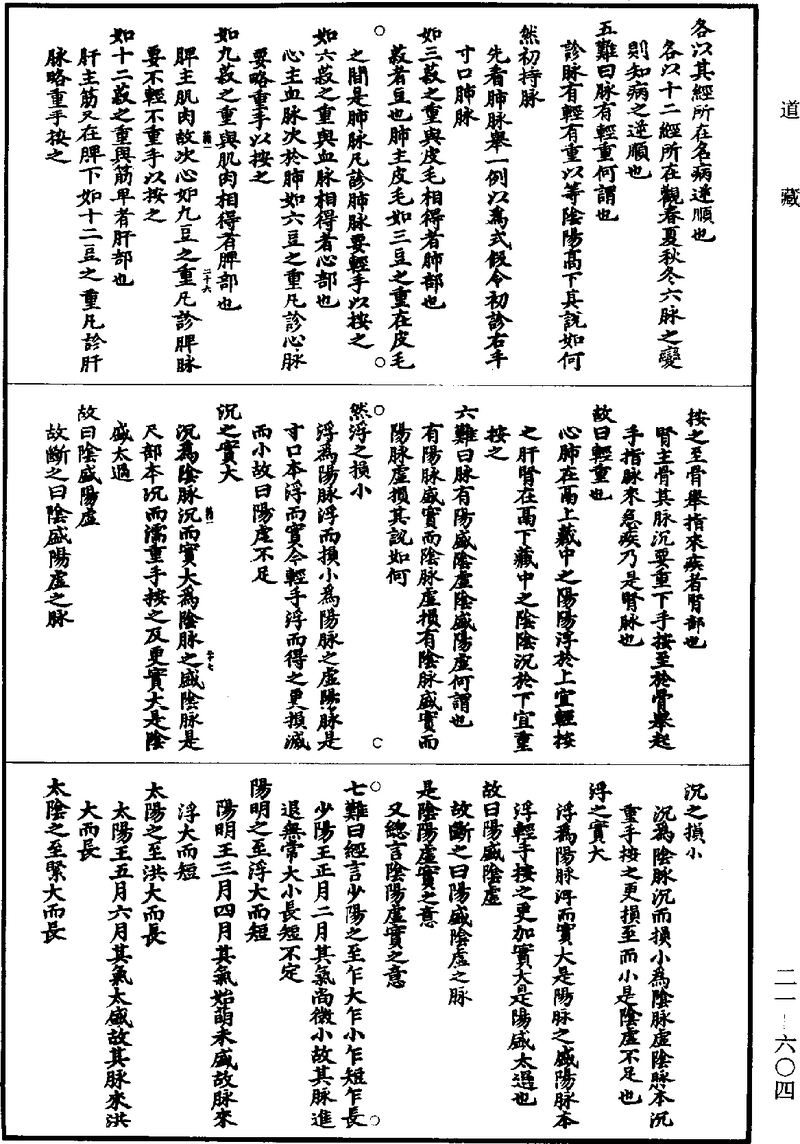 道藏
各以其經所在名病逆順也
各以十二經所在觀春夏秋冬六脉之變
則知病之逆順也
五難曰脉有輕重何謂也
診脉有輕有重以等陰陽高下其說如何
然初持脉
先看肺脉舉一例以爲式假令初診右手
寸口肺脉
如三菽之重與皮毛相得者肺部也
菽者豆也肺主皮毛如三豆之重在皮毛
之間是肺脉凡診肺脉要輕手以按之
如六菽之重與血脉相得者心部也
心主血脉次於肺如六豆之重凡診心脉
要略重手以按之
如九菽之重與肌肉相得者脾部也
脾主肌肉故次心如九豆之重凡診脾脉
要不輕不重手以按之
如十二菽之重與筋卑者肝部也
肝主筋又在脾下如十二豆之重凡診肝
脉略重手按之
按之至骨舉指來疾者腎部也
腎主骨其脉沉要重下手按至於骨舉起
手指脉來急疾乃是腎脉也
故曰輕重也
心肺在鬲上藏中之陽陽浮於上宜輕按
之肝腎在鬲下藏中之陰陰沉於下宜重
按之
六難曰脉有陽盛陰虛陰盛陽虛何謂也
有陽脉盛實而陰脉虛損有陰脉盛實而
陽脉虛損其說如何
然浮之損小
浮爲陽脉浮而損小爲陽脉之虛陽脉是
寸口本浮而實今輕手浮而得之更損減
而小故曰陽虛不足
沉之實大
沉爲陰脉沉而實大爲陰脉之盛陰脉是
尺部本沉而濡重手按之反更實大是陰
盛太過
故曰陰盛陽虛
故斷之曰陰盛陽虛之脉
沉之損小
沉爲陰脉沉而損小爲陰脉虛陰脉本沉
重手按之更損至而小是陰虛不足也
浮之實大
浮爲陽脉浮而實大是陽脉之盛陽脉本
浮輕手按之更加實大是陽盛太過也
故曰陽盛陰虛
故斷之曰陽盛陰虛之脉
是陰陽虛實之意
又總言陰陽虛實之意
七難曰經言少陽之至乍大乍小乍短乍長
少陽王正月二月其氣尚微小故其脉進
退無常大小長短不定
陽明之至浮大而短
陽明王三月四月其氣始萌未盛故脉來
浮大而短
太陽之至洪大而長
太陽王五月六月其氣太盛故其脉來洪
大而長
太陰之至緊大而長
二一—六〇四